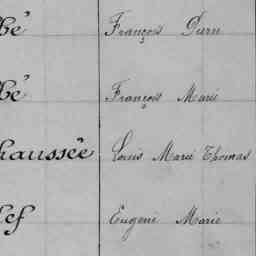 bé François Durn
bé François Marie
haussée Louis Marie Thomas
lef Eugene Marie